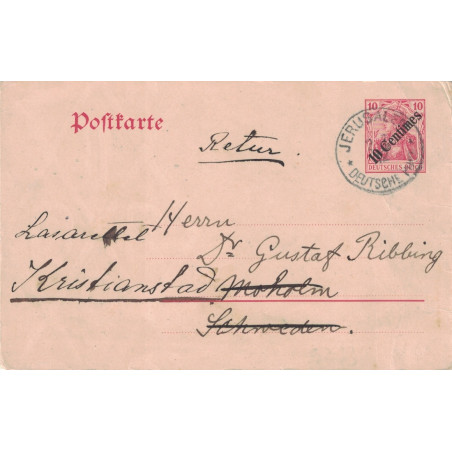 Postkarte
10 10
10 Centimes
DEUTSCHES REICH
JERUSALEM
DEUTSCHE
Retur.
Herrn
Lasarettet
Dr Gustaf Ribbing
Kristianstad Moholm
Schweden.